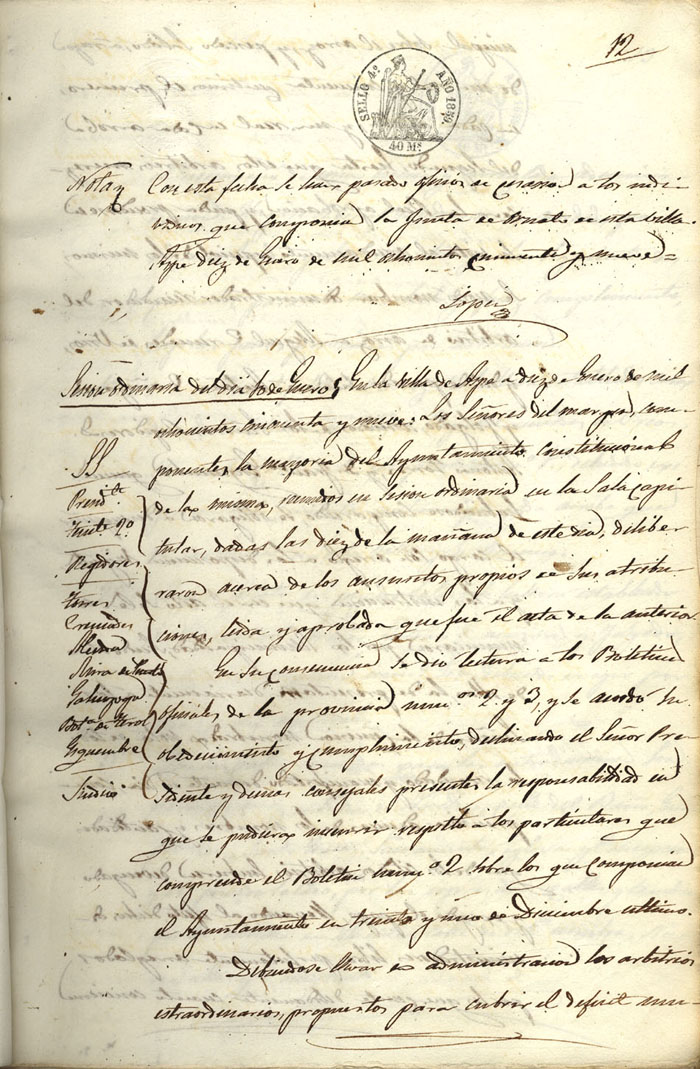 12
SELLO 4º AÑO 1859.
40 Ms
Nota Con esta fecha se han pasado oficios de cesasion a los indi-
viduos que componian la Junta de Ornato de esta villa.
Aspe diez de Enero de mil ochocientos cincuenta y nueve =
Lopez
Sesion ordinaria del dia 10 de Enero; En la Villa de Aspe a diez de Enero de mil
ochocientos cincuenta y nueve: Los Señores del margen, com-
SS
ponentes la mayoria del Ayuntamiento Constitucional
Presidte
de la misma, reunidos en sesion ordinaria en la Sala Capi-
Tente 2º
tular, dadas las diez de la mañana de este dia, delibe-
Regidores
raron acerca de los asuntos propios de sus atribu-
Torres
Cremades
ciones, leida y aprobada que fué el acta de la anterior
Almodi
En su consecuencia se dió lectura a los Boletines
Galinzoga
oficiales de la provincia numos 2 y 3, y se acordó su
Botª de Torres
obedecimiento y cumplimiento, declinando el Señor Pre-
Esquembre
sidente y demas consejales presentes la responsabilidad en
Sindico
que se pudiera incurrir respecto a los particulares que
comprende el Boletin numº 2 sobre los que componian
el Ayuntamiento en treinta y uno de Diciembre ultimo.
Debiendose llevar en administracion los arbitrios
estraordinarios, propuestos para cubrir el deficit mu-